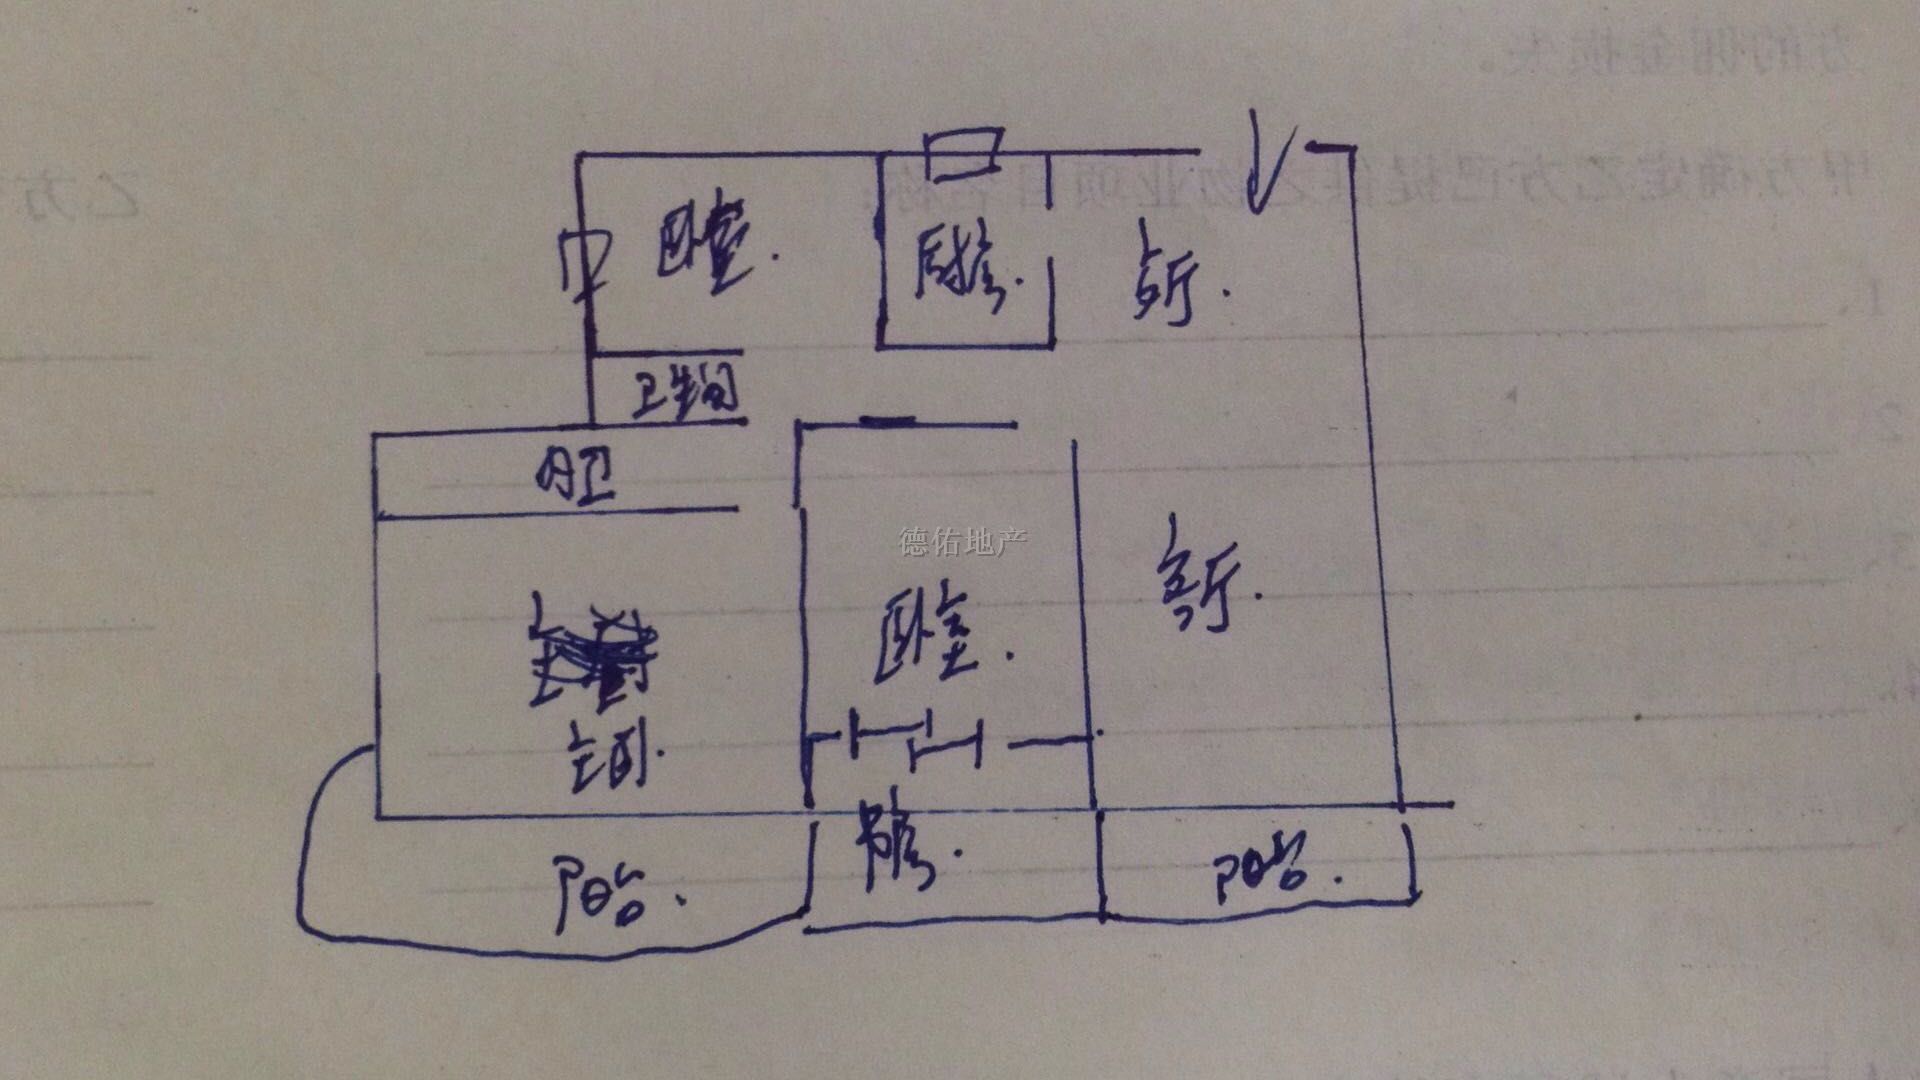 卧室.
厨房.
餐厅.
卫生间
内卫
德佑地产
客厅.
卧室.
主卧.
书房.
阳台.
阳台.